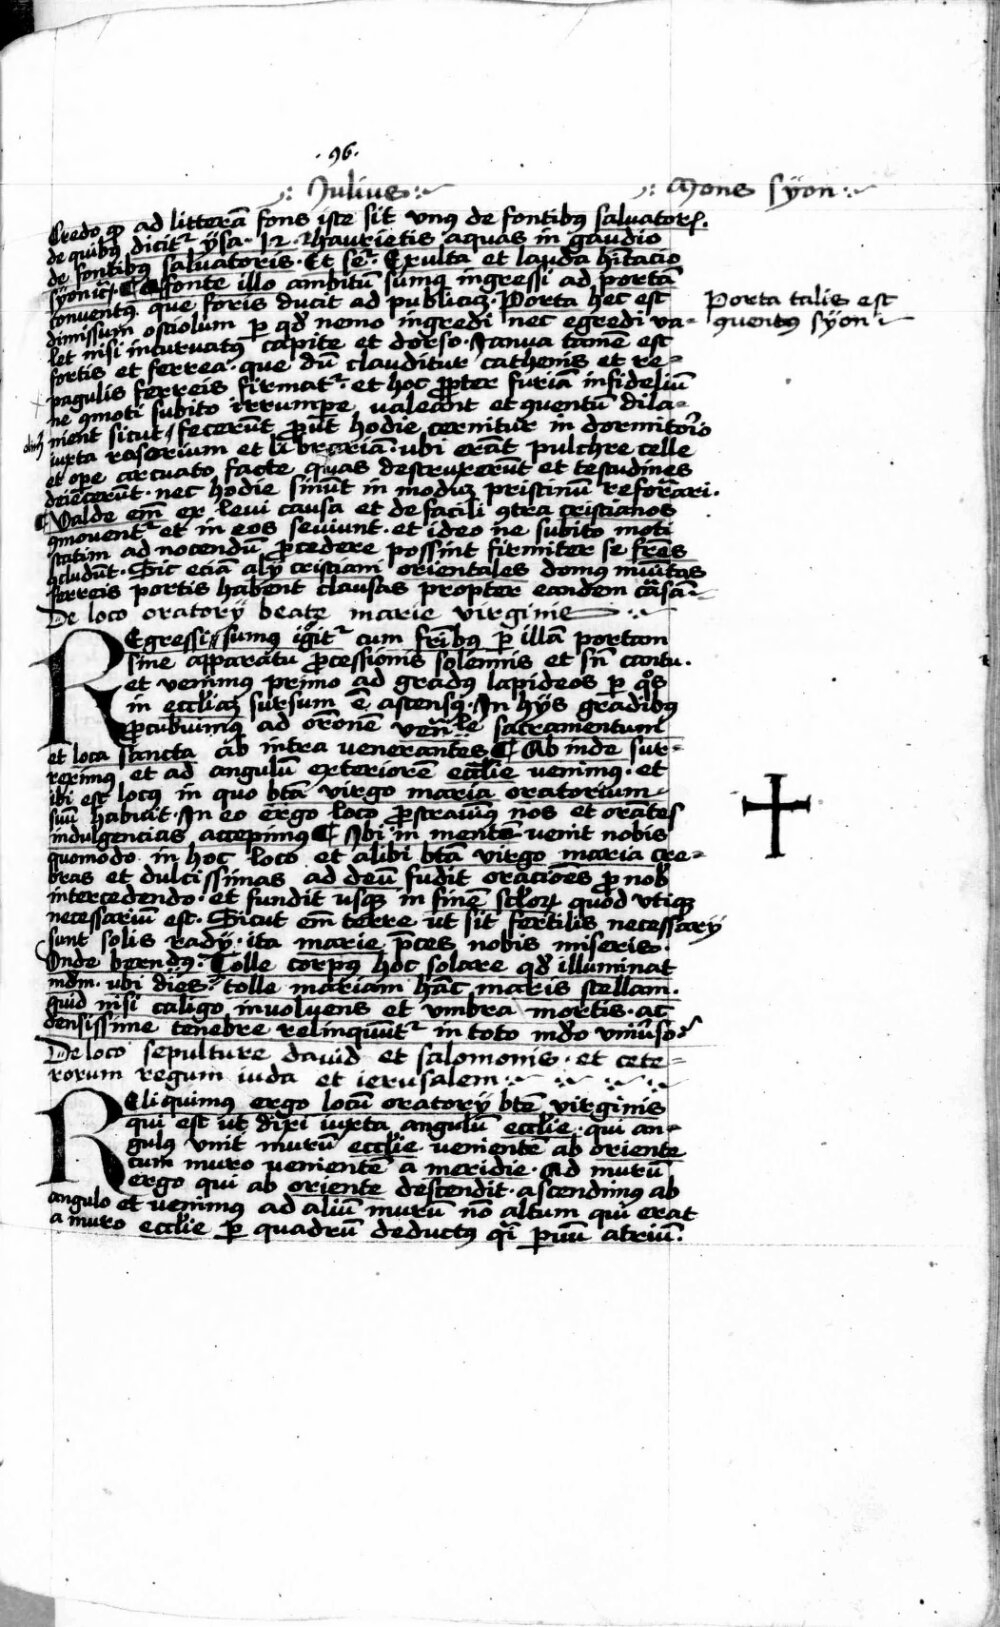 · 96 ·
Julius
Mons syon
Credo ꝙ ad litterā fons iste sit vnꝰ de fontibꝰ saluatoꝝ.
de quibꝰ dicitᷣ ysa· 12 · Haurietis aquas in gaudio
de fontibꝰ saluatoris · Et se · Exulta et lauda hitacio
syon ⁊cꝭ · ¶ A fonte illo ambitū sumꝰ ingressi ad portā
conuentꝰ · que foris ducit ad publicū · Porta hec est
dimissum ostiolum ꝑ qđ nemo ingredi nec egredi va-
let nisi incuruatꝰ capite et dorso · Janua tamē est
fortis et ferrea · que dū clauditur cathenis et re-
pagulis ferreis firmatᷣ · et hoc ꝓpter furiā infideliū
ne ꝯmoti subito irrumpe valeant et ꝯuentū dila-
nient sicut fecerūt ꝓut hodie cernitur in dormitorio
iuxta rasorium et librariā · ubi erāt pulchre celle
et oꝑe arcuato facte quas destruxerūt et testudines
deiecerūt · nec hodie sinūt in modū pristinū reformari ·
¶ Valde em̄ ex leui causa et de facili ꝯtra cristianos
ꝯmouentᷣ et in eos seuiunt · et ideo ne subito moti
statim ad nocendū ꝓcedere possint firmiter se fr̄es
ꝯcludūt · Sic eciā alij cristiani orientales domus munitas
ferreis portis habent clausas propter eandem causā
De loco oratorij beate marie virginis
REgressi sumꝰ igitᷣ cum fr̄ibꝰ ꝑ illā portam
sine apparatu ꝓcessionis solennis et sn̄ cantu ·
et venimus primo ad gradus lapideos ꝑ qͦs
in eccl̄iaꝫ sursum ē ascensꝰ · In hijs gradibꝰ
ꝓcubuimꝰ ad or̄onē ven̄le sacramentum
et loca sancta ab intra venerantes ¶ Ab inde sur-
reximꝰ et ad angulū exteriorē eccl̄ie venimꝰ · et
ibi est locꝰ in quo bt̄a virgo maria oratorium
suū habuit · In eo ergo loco ꝓstrauimꝰ nos et orātes
indulgencias accepimꝰ ¶ Ibi in mentē venit nobis
quomodo in hoc loco et alibi bt̄a virgo maria cre-
bras et dulcissimas ad deū fudit oracioēs ꝓ nob̄
intercedendo · et fundit usqꝫ in finē scl̄oꝝ quod vtiqꝫ
necessariū est · Sicut em̄ terre ut sit fertilis necessarij
sunt solis radij · ita marie p̄ces nobis miseris ·
Vnde bern̄dꝰ · Tolle corpꝰ hoc solare qđ illuminat
md̄m · ubi dies · tolle mariam hāc maris stellam ·
quid nisi caligo inuoluens et vmbra mortis · ac
densissime tenebre relinquūtᷣ in toto mdo vniuso
De loco sepulture dauid et salomonis · et cete-
rorum regum iuda et ierusalem
REliquimꝰ ergo locū oratorij bt̄e virginis
qui est ut dixi iuxta angulū eccl̄ie · qui an-
gulꝰ vnit murū eccl̄ie venientē ab oriente
cum muro venientē a meridie · Ad murū
ergo qui ab oriente descendit · ascendimꝰ ab
angulo et venimus ad aliū murū nō altum qui erat
a muro eccl̄ie ꝑ quadrū deductꝰ qͣi ꝑuū atriū ·
Porta talis est
ꝯuentꝰ syon